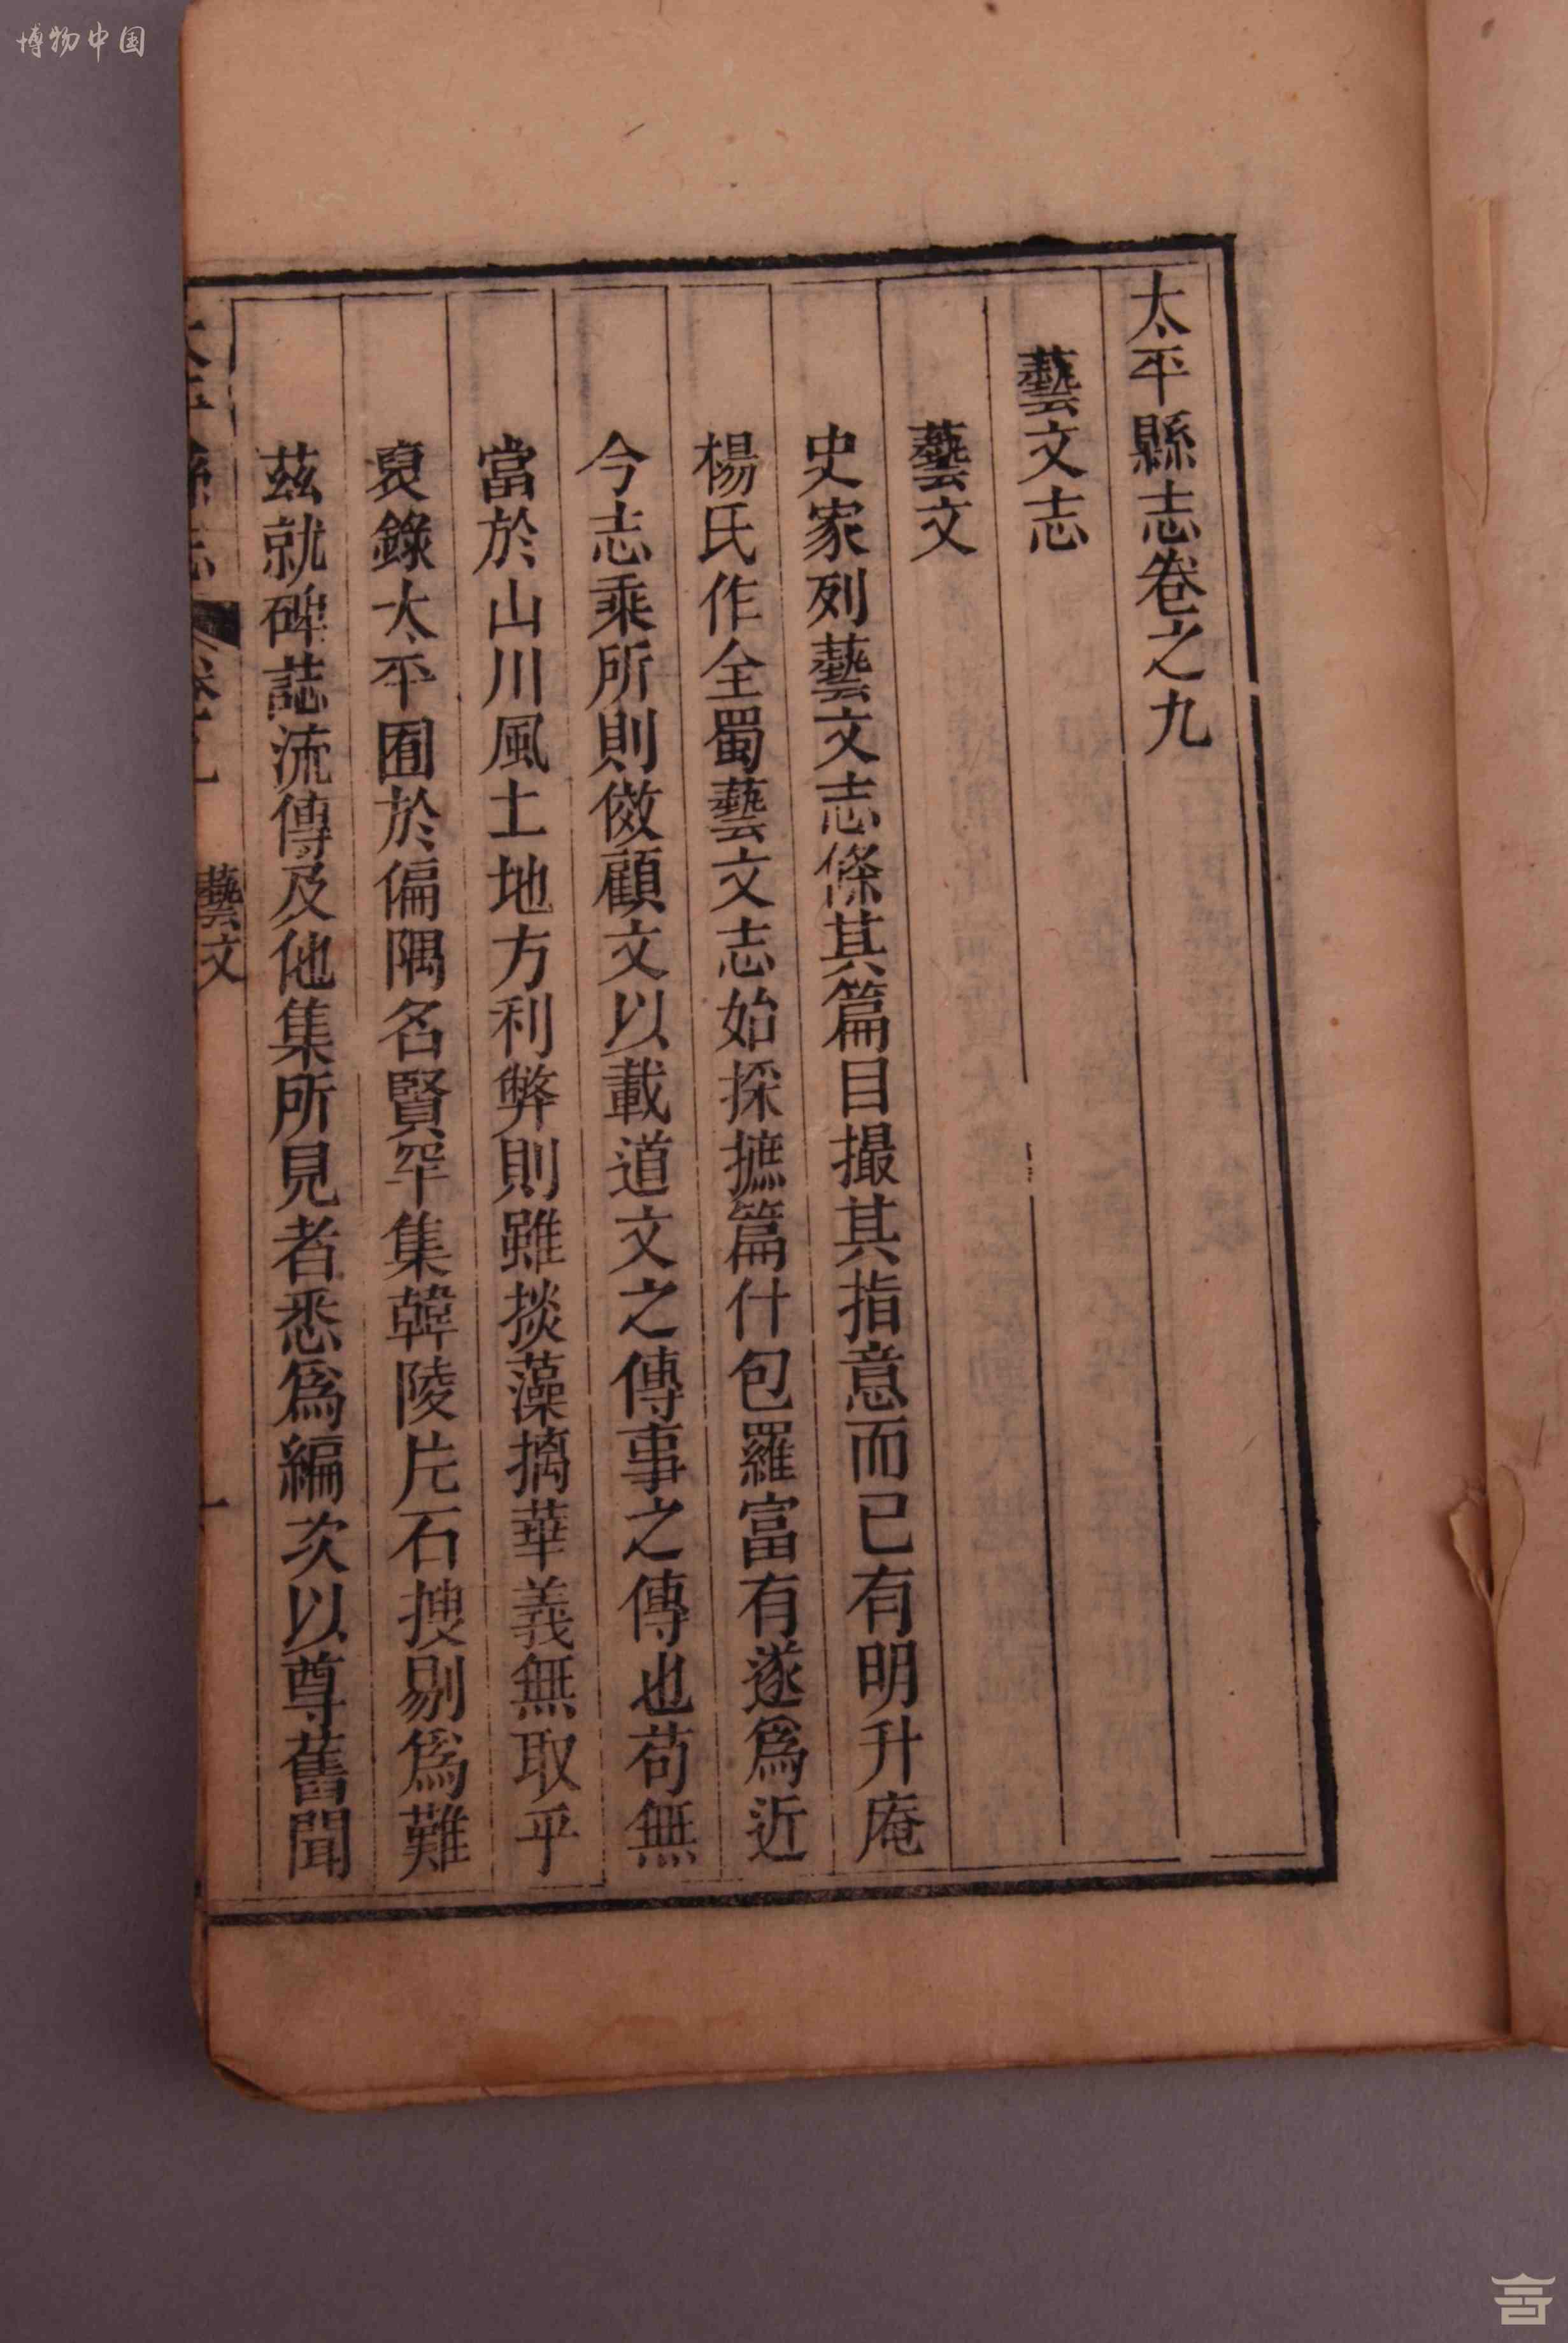 博物中国
太平縣志卷之九
藝文志
藝文
史家列藝文志條其篇目撮其指意而已有明升庵
楊氏作全蜀藝文志始採摭篇什包羅富有遂為近
今志乘所則倣顧文以載道文之傳事之傳也苟無
當於山川風土地方利弊則雖掞藻摛華義無取乎
裒錄太平囿於偏隅名賢罕集韓陵片石搜剔為難
茲就碑誌流傳及他集所見者悉為編次以尊舊聞
太平縣志 卷九 藝文 一